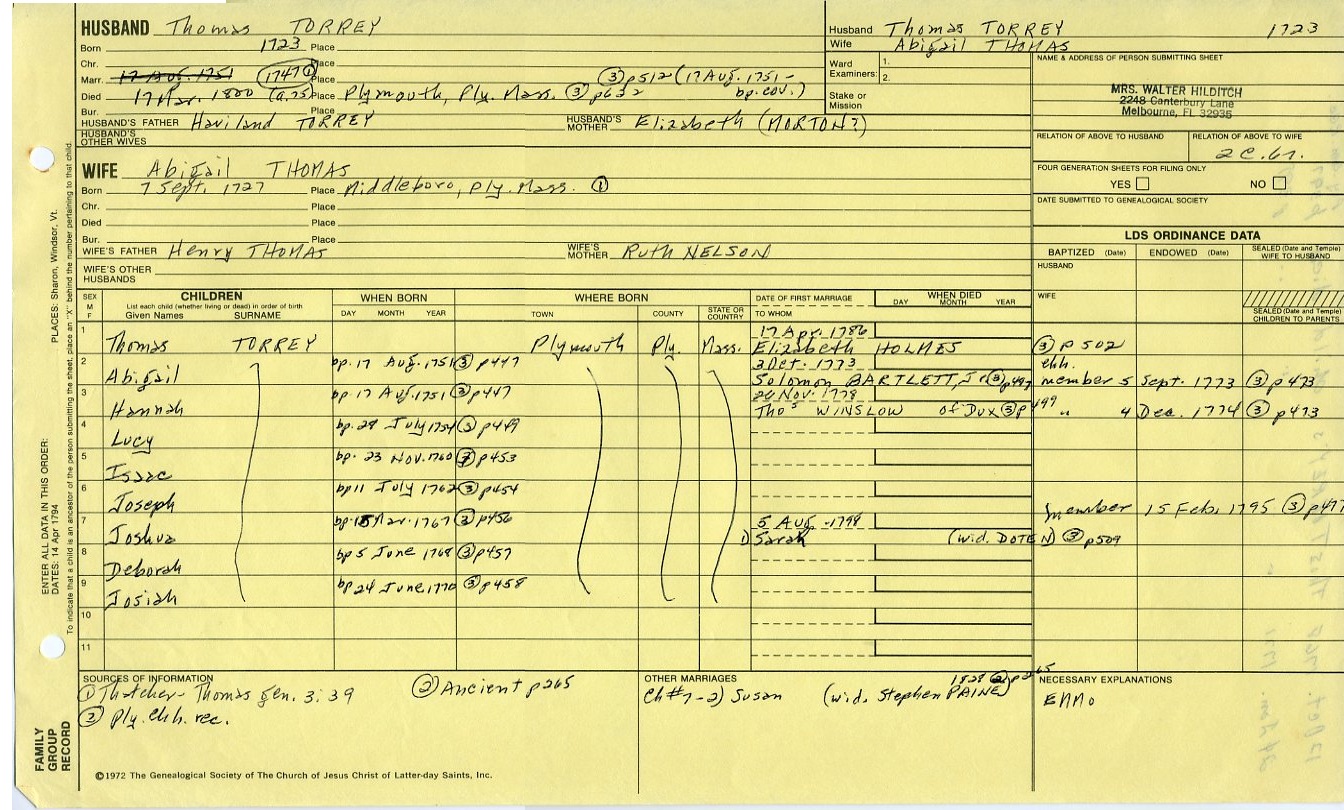 HUSBAND Thomas TORREY
Born 1723 Place
Chr. Place
Marr. 17 Aug. 1751 1747 ① Place ③ p512 (17 Aug. 1751 -
Died 17 Mar. 1800 (a.75) Place Plymouth, Ply. Mass. ③ p632 bp. cov.)
Bur. Place
HUSBAND'S FATHER Haviland TORREY HUSBAND'S MOTHER Elizabeth (MORTON?)
HUSBAND'S OTHER WIVES
WIFE Abigail THOMAS
Born 7 Sept. 1727 Place Middleboro, Ply. Mass. ①
Chr. Place
Died Place
Bur. Place
WIFE'S FATHER Henry THOMAS WIFE'S MOTHER Ruth NELSON
WIFE'S OTHER HUSBANDS
Husband Thomas TORREY 1723
Wife Abigail THOMAS
Ward Examiners: 1.
2.
Stake or Mission
NAME & ADDRESS OF PERSON SUBMITTING SHEET
MRS. WALTER HILDITCH
2248 Canterbury Lane
Melbourne, FL 32935
RELATION OF ABOVE TO HUSBAND RELATION OF ABOVE TO WIFE
2C.6r.
FOUR GENERATION SHEETS FOR FILING ONLY
YES NO
DATE SUBMITTED TO GENEALOGICAL SOCIETY
LDS ORDINANCE DATA
BAPTIZED (Date) ENDOWED (Date) SEALED (Date and Temple) WIFE TO HUSBAND
HUSBAND
WIFE
SEALED (Date and Temple) CHILDREN TO PARENTS
SEX M F CHILDREN WHEN BORN WHERE BORN DATE OF FIRST MARRIAGE WHEN DIED
List each child (whether living or dead) in order of birth
Given Names SURNAME DAY MONTH YEAR TOWN COUNTY STATE OR COUNTRY TO WHOM DAY MONTH YEAR
1 17 Apr. 1786
Thomas TORREY Plymouth Ply. Mass. Elizabeth HOLMES ③ p502
2 bp. 17 Aug. 1751 ③ p447 2 Oct. 1773 chh.
Abigail Solomon BARTLETT, Jr ③ p497 member 5 Sept. 1773 ③ p473
3 bp. 17 Aug. 1751 ③ p447 26 Nov. 1778
Hannah Thos WINSLOW of Dux ③ p499 " 4 Dec. 1774 ③ p473
4 bp. 28 July 1754 ③ p449
Lucy
5 bp. 23 Nov. 1760 ③ p453
Isaac
6 bp 11 July 1762 ③ p454
Joseph member 15 Feb. 1795 ③ p477
7 bp. 15 Mar. 1767 ③ p456 5 Aug. 1798
Joshua 1) Sarah (wid. DOTEN) ③ p509
8 bp 5 June 1768 ③ p457
Deborah
9 bp 24 June 1770 ③ p458
Josiah
10
11
SOURCES OF INFORMATION
① Thatcher-Thomas gen. 3:39 ② Ancient p265
③ Ply. chh. rec.
OTHER MARRIAGES
1828 ② p265
Ch #7-2) Susan (wid. Stephen PAINE)
NECESSARY EXPLANATIONS
EMMO
©1972 The Genealogical Society of The Church of Jesus Christ of Latter-day Saints, Inc.
FAMILY GROUP RECORD
ENTER ALL DATA IN THIS ORDER:
DATES: 14 Apr 1794 PLACES: Sharon, Windsor, Vt.
To indicate that a child is an ancestor of the person submitting the sheet, place an "X" behind the number pertaining to that child.